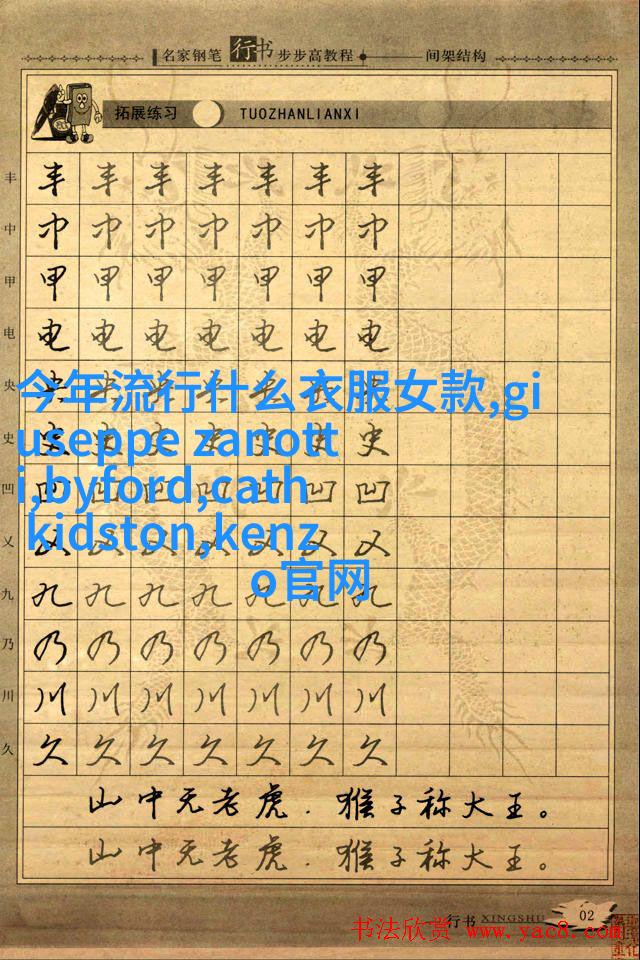 名家钢笔 行书 步步高教程 间架结构
拓展练习 TUOZHANLIANXI
丰 丰 丰 丰 丰 丰 丰 丰
中 中 中 中 中 中 中 中
甲 甲 甲 甲 甲 甲 甲 甲
电 电 电 电 电 电 电 电
央 央 央 央 央 央 央 央
今年流行什么衣服女款,gi
史 史 史 史 史 史 史 史
useppe zanott
凹 凹 凹 凹 凹 凹 凹 凹
i,byford,cath
乂 乂 乂 乂 乂 乂 乂 乂
kidston,kenz
o官网
九 九 九 九 九 九 九 九
乃 乃 乃 乃 乃 乃 乃 乃
川 川 川 川 川 川 川 川
久 久 久 久 久 久 久 久
山中无老虎．猴子称大王。
山中无老虎．猴子称大王。
行书 XINGSHU 02
书法欣赏 www.yac8.com